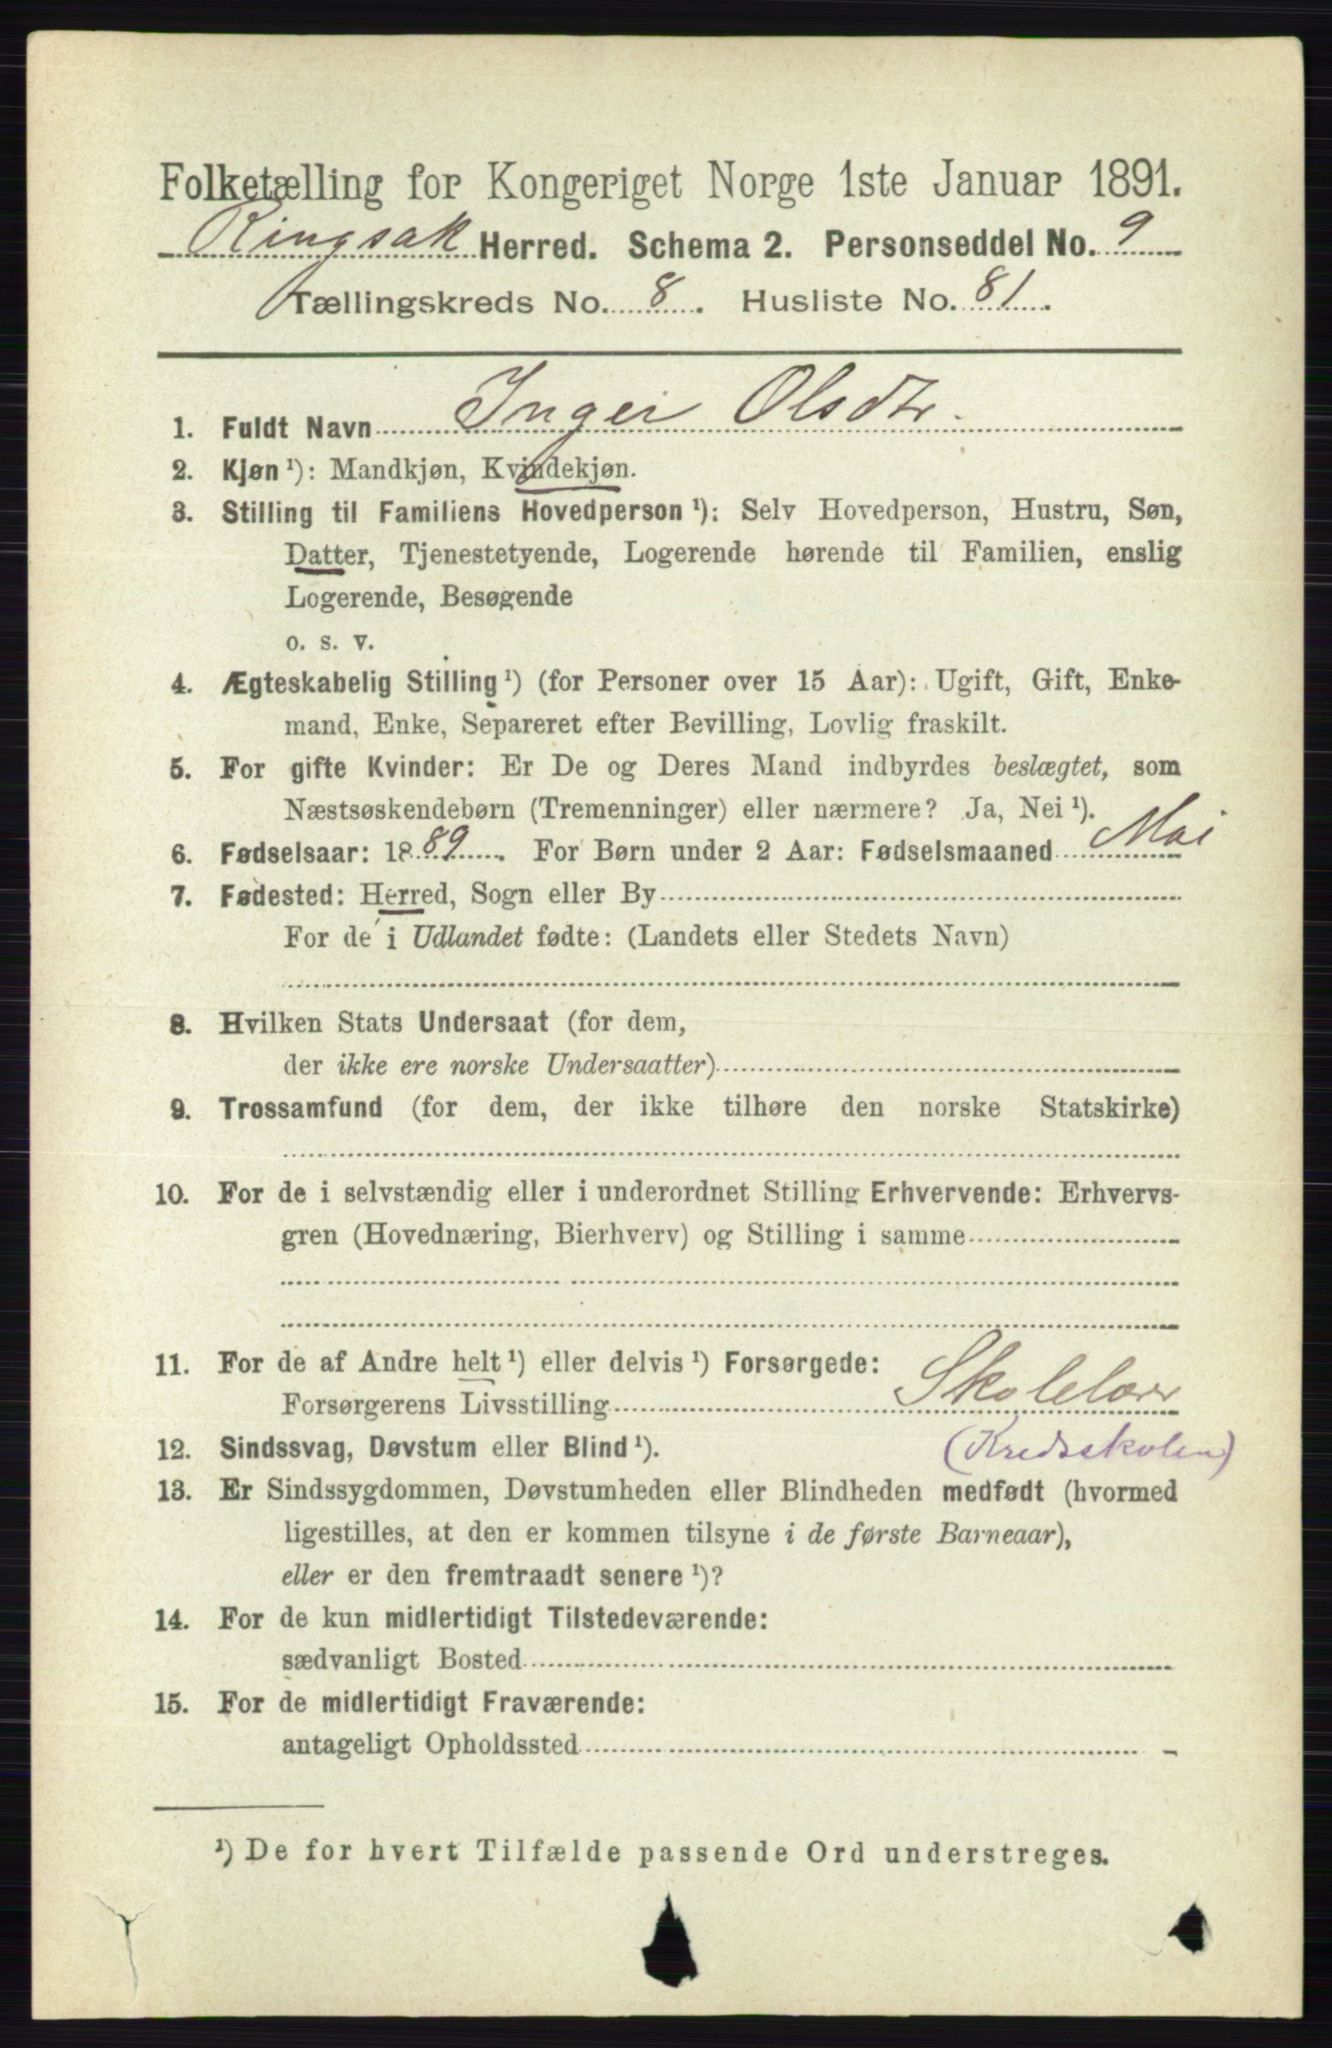 Folketælling for Kongeriget Norge 1ste Januar 1891.
Ringsak Herred. Schema 2. Personseddel No. 9
Tællingskreds No. 8. Husliste No. 81.
1. Fuldt Navn Inger Olsdtr.
2. Kjøn ¹): Mandkjøn, Kvindekjøn.
3. Stilling til Familiens Hovedperson ¹): Selv Hovedperson, Hustru, Søn,
Datter, Tjenestetyende, Logerende hørende til Familien, enslig
Logerende, Besøgende
o. s. v.
4. Ægteskabelig Stilling ¹) (for Personer over 15 Aar): Ugift, Gift, Enke-
mand, Enke, Separeret efter Bevilling, Lovlig fraskilt.
5. For gifte Kvinder: Er De og Deres Mand indbyrdes beslægtet, som
Næstsøskendebørn (Tremenninger) eller nærmere? Ja, Nei ¹).
6. Fødselsaar: 1889. For Børn under 2 Aar: Fødselsmaaned Mai
7. Fødested: Herred, Sogn eller By
For de i Udlandet fødte: (Landets eller Stedets Navn)
8. Hvilken Stats Undersaat (for dem,
der ikke ere norske Undersaatter)
9. Trossamfund (for dem, der ikke tilhøre den norske Statskirke)
10. For de i selvstændig eller i underordnet Stilling Erhvervende: Erhvervs-
gren (Hovednæring, Bierhverv) og Stilling i samme
11. For de af Andre helt ¹) eller delvis ¹) Forsørgede:
Forsørgerens Livsstilling Skolelærer
12. Sindssvag, Døvstum eller Blind ¹). (Kredsskolen)
13. Er Sindssygdommen, Døvstumheden eller Blindheden medfødt (hvormed
ligestilles, at den er kommen tilsyne i de første Barneaar),
eller er den fremtraadt senere ¹)?
14. For de kun midlertidigt Tilstedeværende:
sædvanligt Bosted
15. For de midlertidigt Fraværende:
antageligt Opholdssted
¹) De for hvert Tilfælde passende Ord understreges.